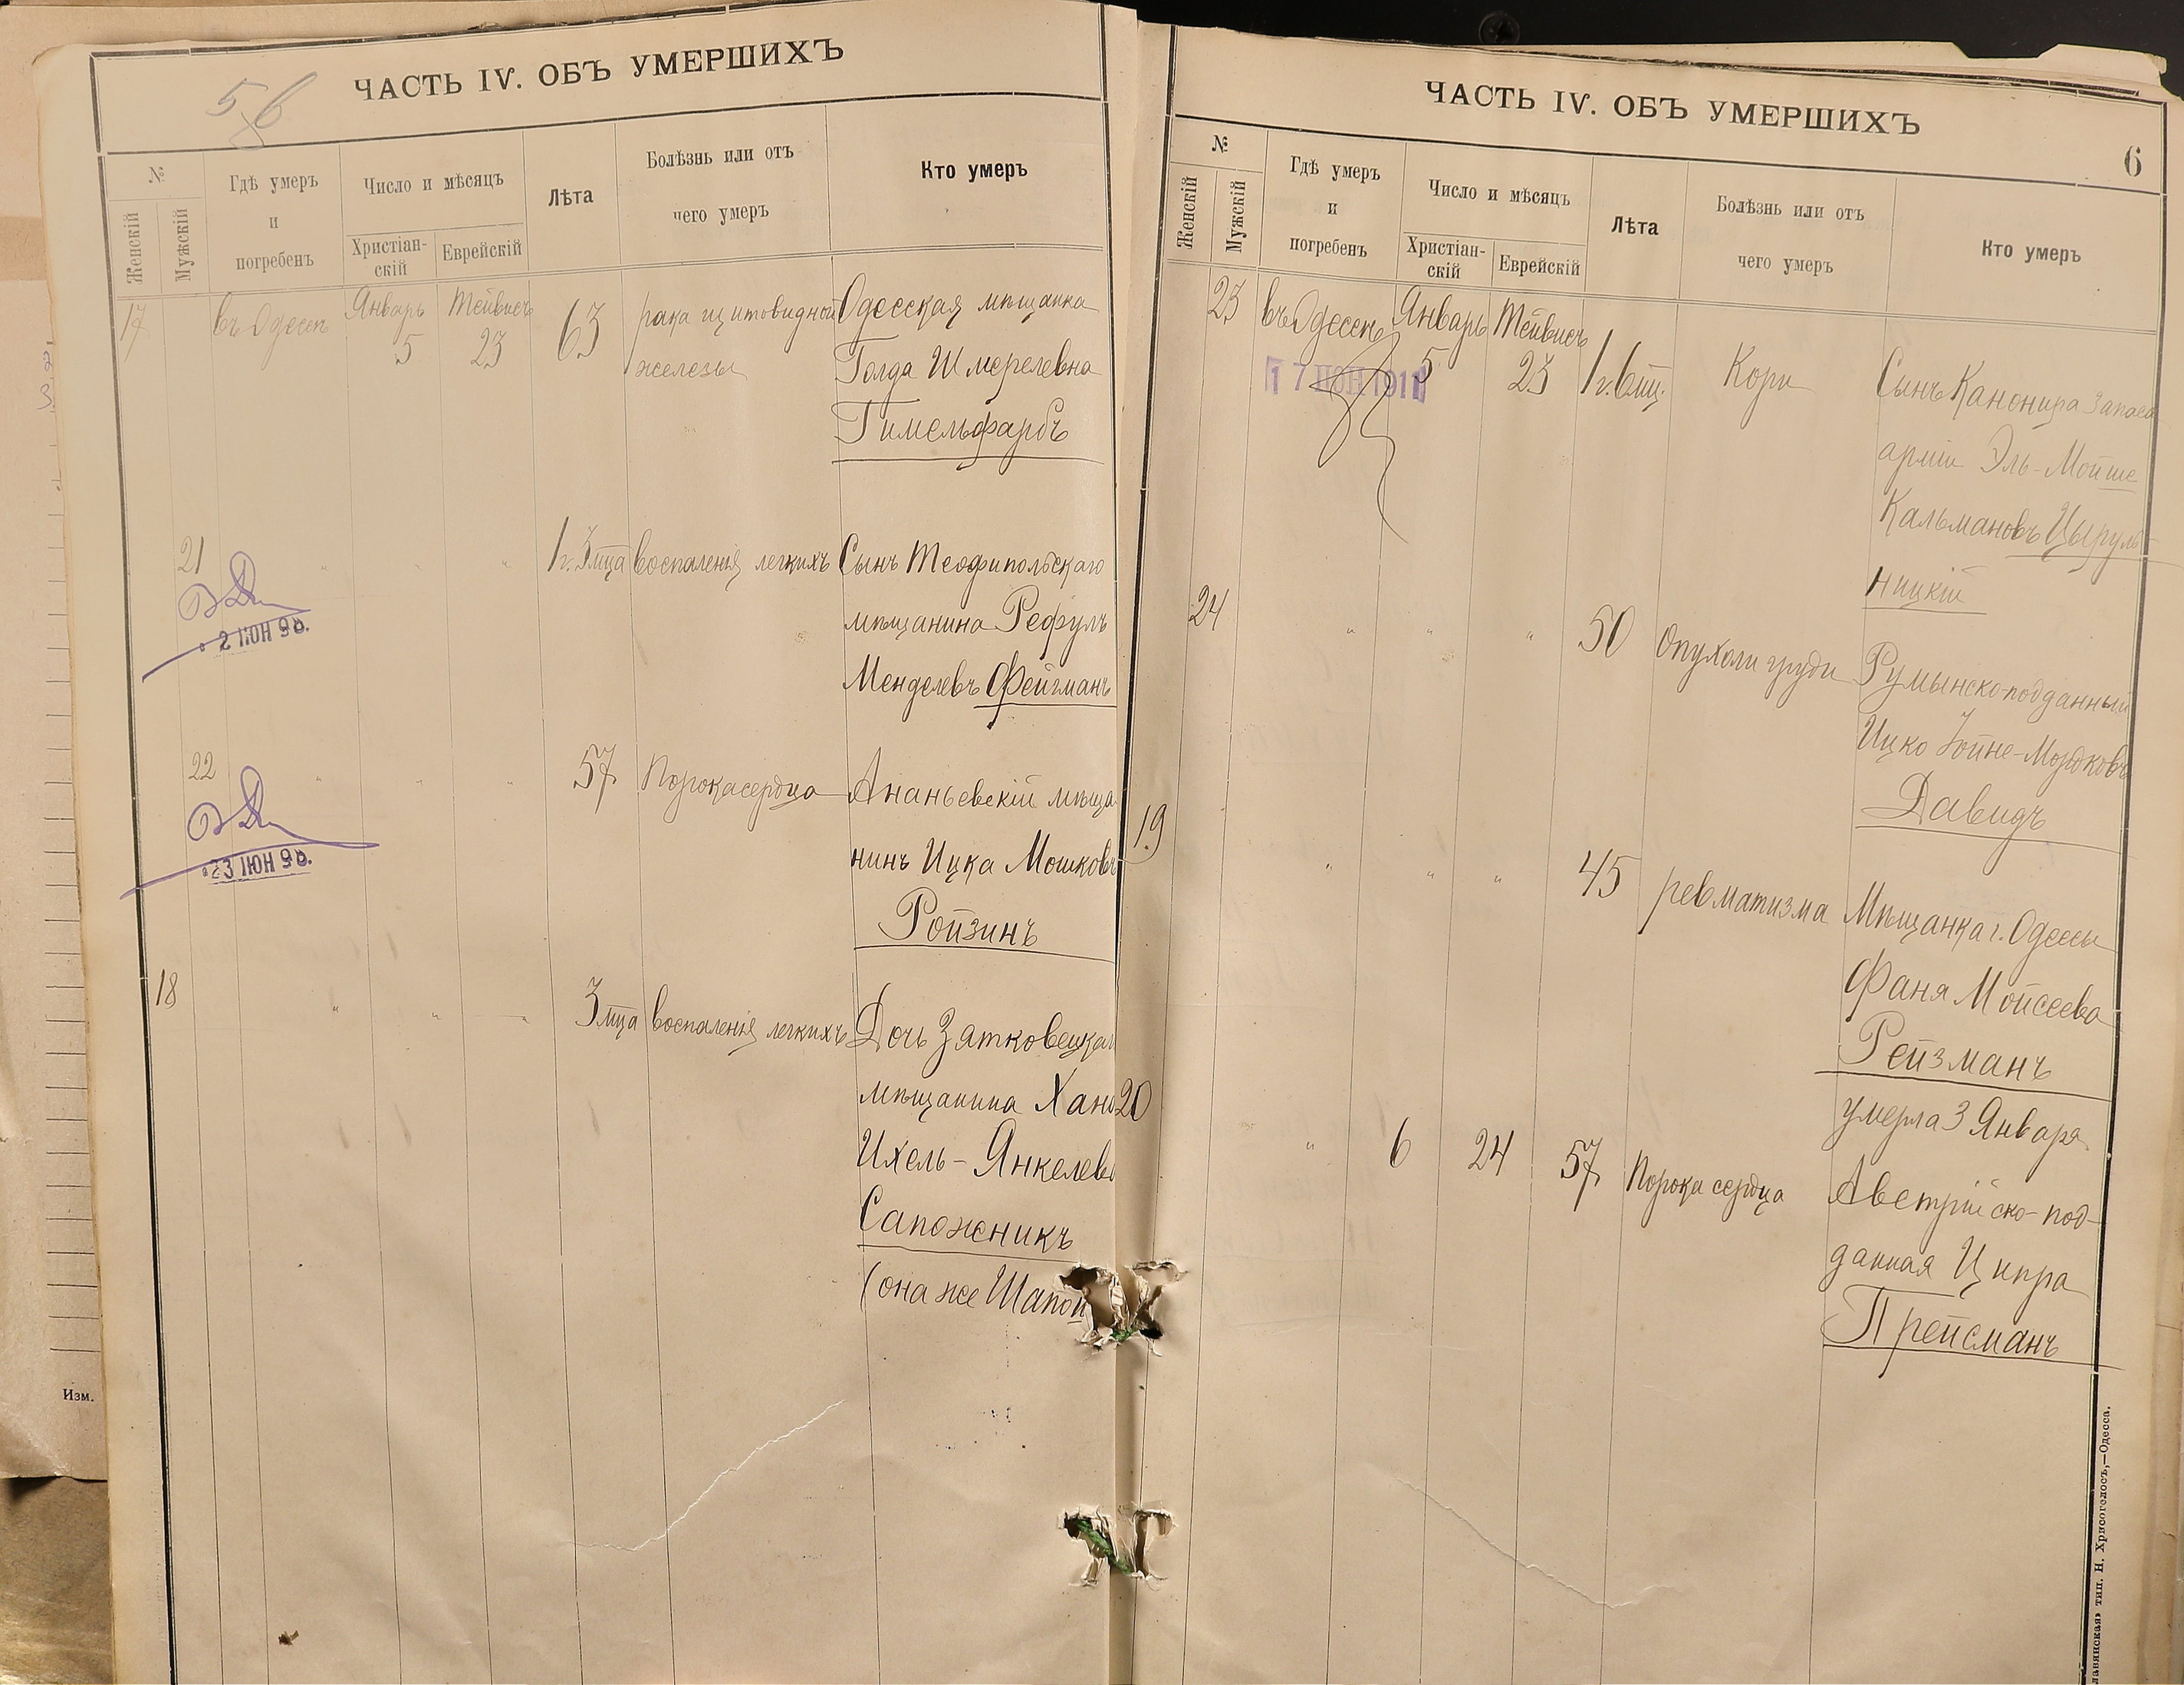 56
ЧАСТЬ IV. ОБЪ УМЕРШИХЪ
№
Женскій
Мужскій
Гдѣ умеръ
и
погребенъ
Число и мѣсяцъ
Христіан-
скій
Еврейскій
Лѣта
Болѣзнь или отъ
чего умеръ
Кто умеръ
17 въ Одессѣ Январь Тейвисъ 63 рака щитовидной Одесская мѣщанка
5 23 железы Голда Шмерелевна
Гимельфарбъ
21 " " 1 г. 3 мца воспаленія легкихъ Сынъ Теофипольскаго
мѣщанина Рефулъ
2 ІЮН 98.
Менделевъ Фейгманъ
22 " " " 57 Порока сердца Ананьевскій мѣща
нинъ Ицка Мошковъ
23 ІЮН 98.
Ройзинъ
18 " " " 3 мца воспаленія легкихъ Дочь Затковецкаг
мѣщанина Хана
Ихель-Янкелева
Сапожникъ
(она же Шапой
Изм.
ЧАСТЬ IV. ОБЪ УМЕРШИХЪ
6
№
Женскій
Мужскій
Гдѣ умеръ
и
погребенъ
Число и мѣсяцъ
Христіан-
скій
Еврейскій
Лѣта
Болѣзнь или отъ
чего умеръ
Кто умеръ
23 въ Одессѣ Январь Тейвисъ
5 23 1 г. 6 мц. Кори Сынъ Канонира запаса
17 ІЮН 1911
арміи Эль-Мойше
Кальмановъ Цыруль-
ницкій
24 " " " 50 Опухоли груди Румынско-подданный
Ицко Іойне-Мордковъ
Давидъ
19 " " " 45 ревматизма Мѣщанка г. Одессы
Фаня Мойсеева
Рейзманъ
умерла 3 Января
20 " 6 24 57 Порока сердца Австрійско-под-
данная Ципра
Прейсманъ
тип. Н. Хрисогелосъ,—Одесса.